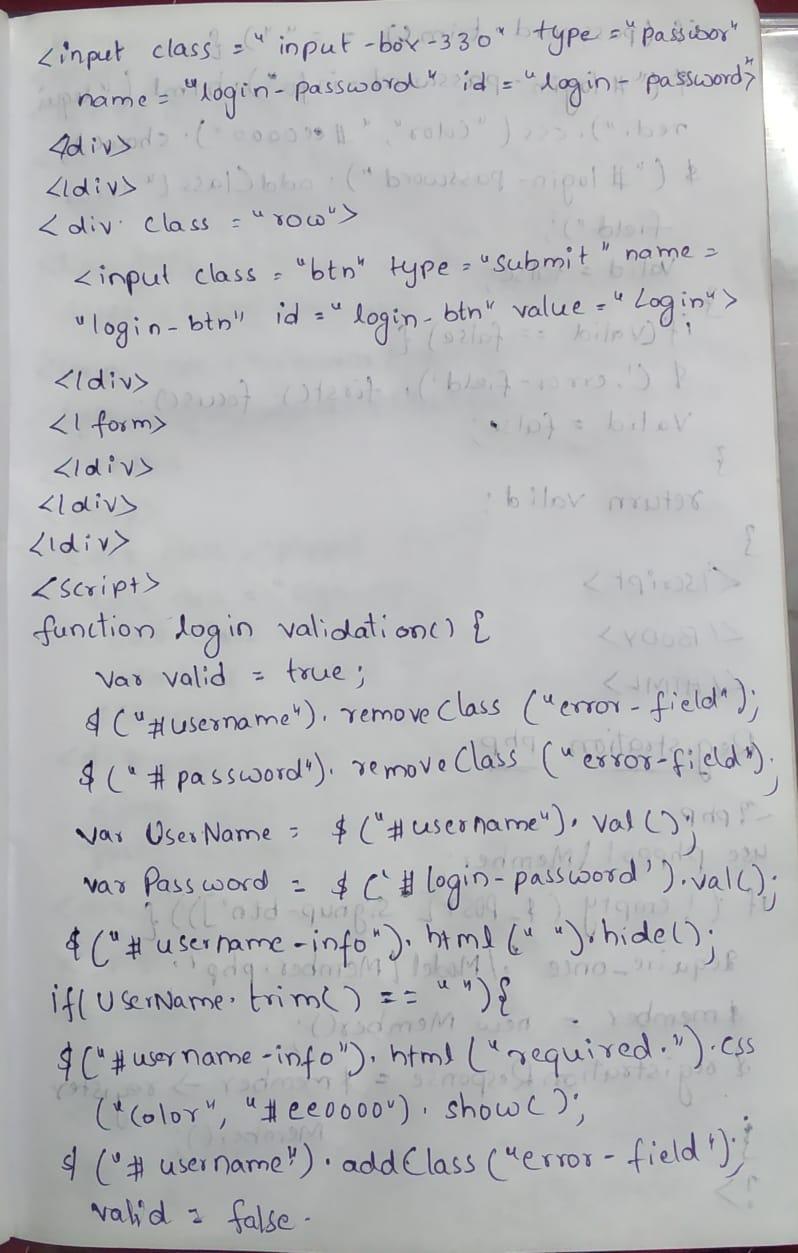 <input class = "input-box-330" type = "passwor"
name = "login-password" id = "login-password>
<div>
</div>
<div class = "row">
<input class = "btn" type = "submit" name =
"login-btn" id = "login-btn" value = "Login">
</div>
</form>
</div>
</div>
</div>
<script>
function login validation() {
Var valid = true;
$("#username"). removeClass ("error-field");
$("#password"). removeClass ("error-field");
var UserName = $("#username"). val ();
var Password = $('#login-password').val();
$("#username-info"). html (" ").hide();
if( UserName. trim() == " "){
$("#username-info"). html ("required.").css
("color", "#ee0000"). show();
$("#username").addClass ("error-field");
valid = false.